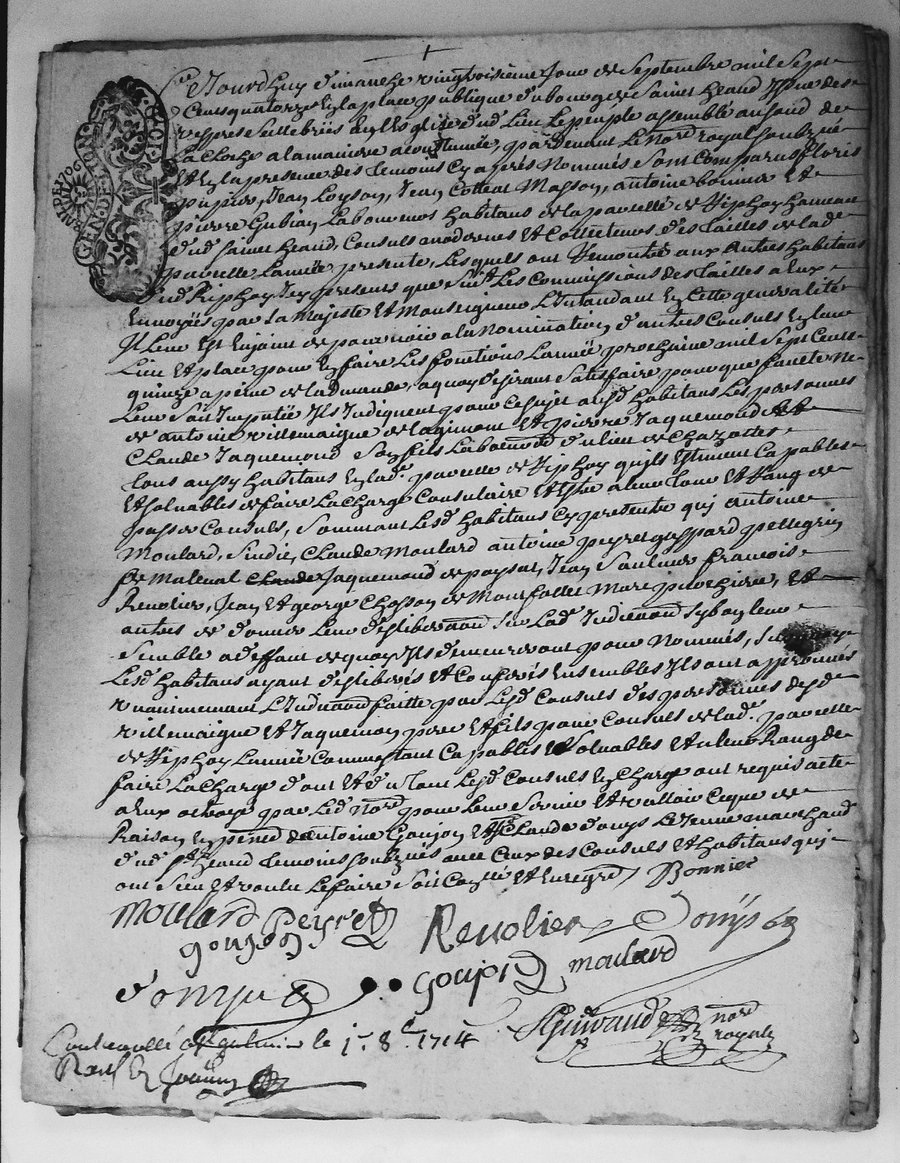 Ce Jourdhuy dimanche vingtroisieme Jour de Septembre mil Sept
Cens quatorze En la place publique du bourg de Saint heand Issue des
vespres Sellebrées En lEglise dud Lieu Le peuple assemblé au son de
La Cloche a la maniere acoutumée, pardevant Le Nord royal Soubzné
Et En la presence des temoins Cy apres Nommés Sont Comparus floris
pupier, Jean Loyson, Jean Masson, antoine bonnier Et
pierre Gubian Laboureurs habitans de la parcelle de Riphoy hameau
dud Saint heand, Consuls modernes Et Collecteurs des tailles de lade
parcelle Lannée presente, Lesquels ont Remontré aux autres habitans
dud Riphoy Icy presents que Suivt Les Commissions des tailles a Eux
Envoyées par Sa Majesté Et Monseigneur LIntandant En Cette generalité
Il Leur Est Enjoint de pourvoir a la Nomination dautres Consuls En leur
Lieu Et place pour En faire Les fonctions Lannée prochaine mil Sept Cens
quinze a peine de lad mande, a quoy desirant Satisfaire pour que faute Ne
Leur Soit Imputée Ils Indiquent pour Ce Sujet ausd habitans Les personnes
de antoine villemaigne de lagimont Et pierre Jaquemond Et
Claude Jaquemond Son fils Laboureurs du lieu de Chazottes
tous aussy habitans En lade parcelle de Riphoy quils Estiment Capables
Et Solvables de faire La Charge Consulaire Et Estre a leur tour Et Rang de
passer Consuls, Sommant Lesd habitans Cy presents qui antoine
Moulard, Sindic, Claude Moulard antoine peyret gaspard pellegrin
de Maleval Claude Jaquemond de Jean Saulnier francois
Revolier, Jean Et george Chosson de Montfollet Et
autres de donner Leur deliberaons Sur Lade Indicaaon Sy bon leur
Semble a deffaut de quoy Ils demeureront pour Nommés,
Lesd habitans ayant deliberés Et Conferés Ensembles Ils ont approuvés
unanimement LIndicaaon faitte par Lesd Consuls des personnes desd
villemaigne Et Jaquemon pere Et fils pour Consuls de lade parcelle
de Riphoy Lannée Comme Estant Capables Et Solvables Et a leur Rang de
faire La Charge dont Et du tout Lesd Consuls En Charge ont requis acte
a Eux octroyé par Led Nord pour Leur Servir Et valloir Ce que de
Raison En pnce de antoine Goujon Et Sr Claude donys Le Jeune marchand
dud St heand temoins Soubznés avec Ceux des Consuls Et habitans qui
ont Sceu Et voulu Le faire Soit Conllé Et Enregré Bonnier
moulard Peyret Revolier Donys
goujon
goupi moulard
Guiraud nord
royal
Controullé a le 1r 8e 1714
GEN. DE LION